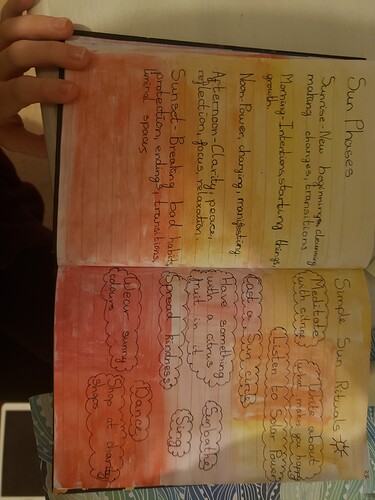 Sun Phases
Sunrise-New beginnings, cleansing,
making changes, transitions
Morning-Intentions, starting things,
growth.
Noon-Power, charging, manifesting
Afternoon-Clarity, peace,
reflection, focus, relaxation.
Sunset-Breaking bad habits,
protection, endings, transitions,
liminal spaces
Simple Sun Rituals
Meditate
with citrine
Write about
what makes you happy
Listen to Solar Power
Cast a Sun circle
Have something
with a citrus
fruit in it
Sunbathe
Spread kindness
Sing
Wear sunny
colours
Dance
Shop at charity
shops